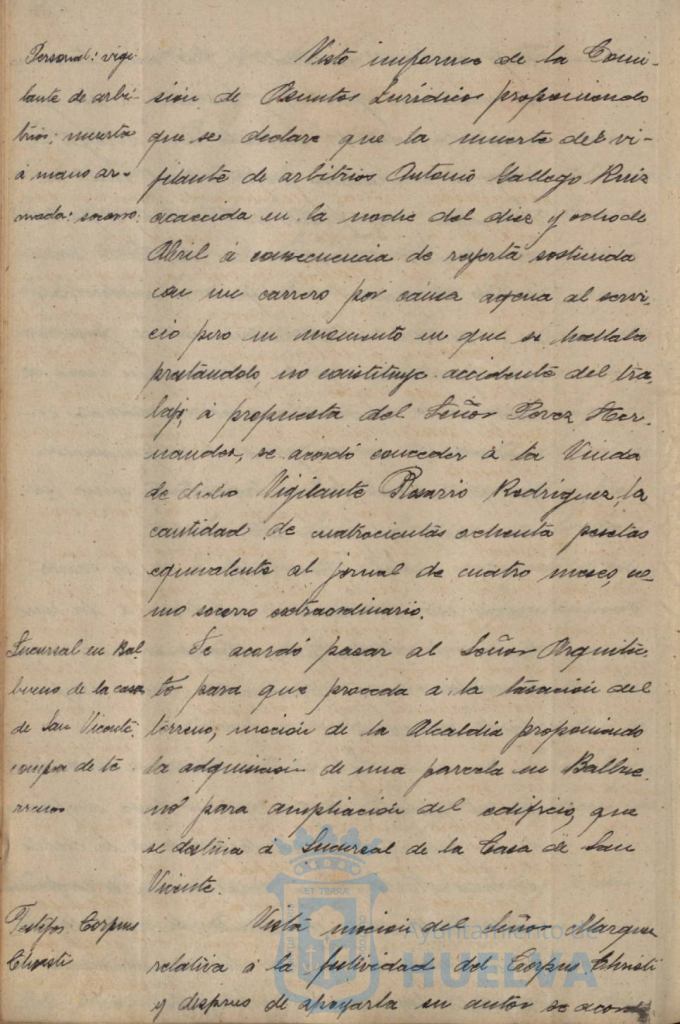 Personal: vigi-
lante de arbi-
trios; muerta
á mano ar-
mada: socorro.
Visto informe de la Comi-
sión de Asuntos Jurídicos proponiendo
que se declare que la muerte del vi-
gilante de arbitrios Antonio Gallego Ruiz
acaecida en la noche del diez y ocho de
Abril á consecuencia de reyerta sostenida
con un carrero por causa agena al servi-
cio pero en momento en que se hallaba
prestándolo, no constituye accidente del tra-
bajo, á propuesta del Señor Perez Her-
nandez, se acordó conceder á la Viuda
de dicho Vigilante Rosario Rodríguez, la
cantidad de cuatrocientas ochenta pesetas
equivalente al jornal de cuatro meses, co-
mo socorro extraordinario.
Sucursal en Bal-
bueno de la casa
de San Vicente:
compra de te-
rrenos
Se acordó pasar al Señor Arquitec-
to para que proceda á la tasación del
terreno, moción de la Alcaldía proponiendo
la adquisición de una parcela en Balbue-
no para ampliación del edificio, que
se destina á Sucursal de la Casa de San
Vicente.
Festejos Corpus
Christi
Vista moción del Señor Marquez
relativa á la festividad del Corpus Christi
y despues de apoyarla su autor se acordó
ET TERRA
Ayuntamiento de
HUELVA